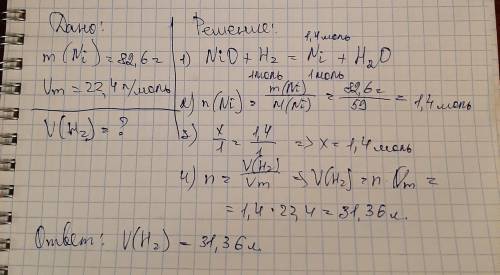 Дано:
m(Ni) = 82,6 г
Vm = 22,4 л/моль
V(H₂) = ?
Решение:
1,4 моль
1) NiO + H₂ = Ni + H₂O
1 моль 1 моль
2) n(Ni) = m(Ni)/M(Ni) = 82,6 г/59 = 1,4 моль
3) x/1 = 1,4/1 => x = 1,4 моль
4) n = V(H₂)/Vm => V(H₂) = n · Vm =
= 1,4 · 22,4 = 31,36 л.
Ответ: V(H₂) = 31,36 л.